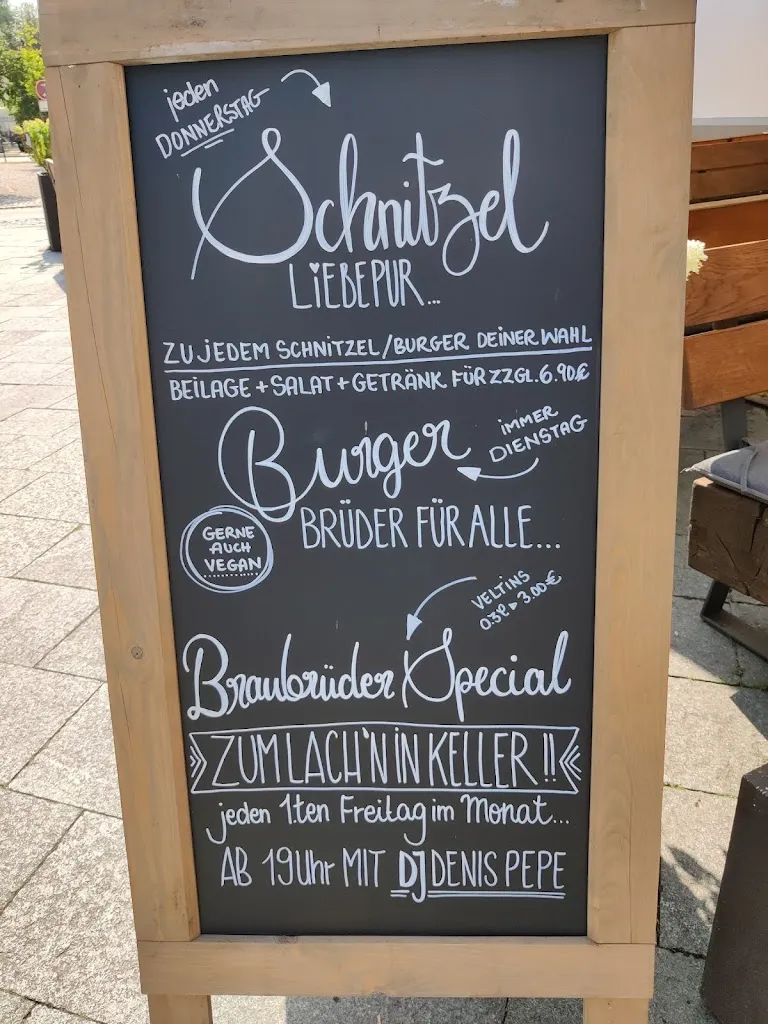 jeden
DONNERSTAG
Schnitzel
LiEBE PUR...
ZU JEDEM SCHNITZEL/BURGER DEINER WAHL
BEILAGE + SALAT + GETRÄNK FÜR ZZGL. 6.90€
Burger
iMMER
DIENSTAG
BRÜDER FÜR ALLE...
GERNE
AUCH
VEGAN
VELTINS
0.3l ▸ 3.00€
Braubrüder Special
ZUM LACH'N iN KELLER!!
jeden 1.ten Freitag im Monat...
AB 19Uhr MIT DJ DENIS PEPE